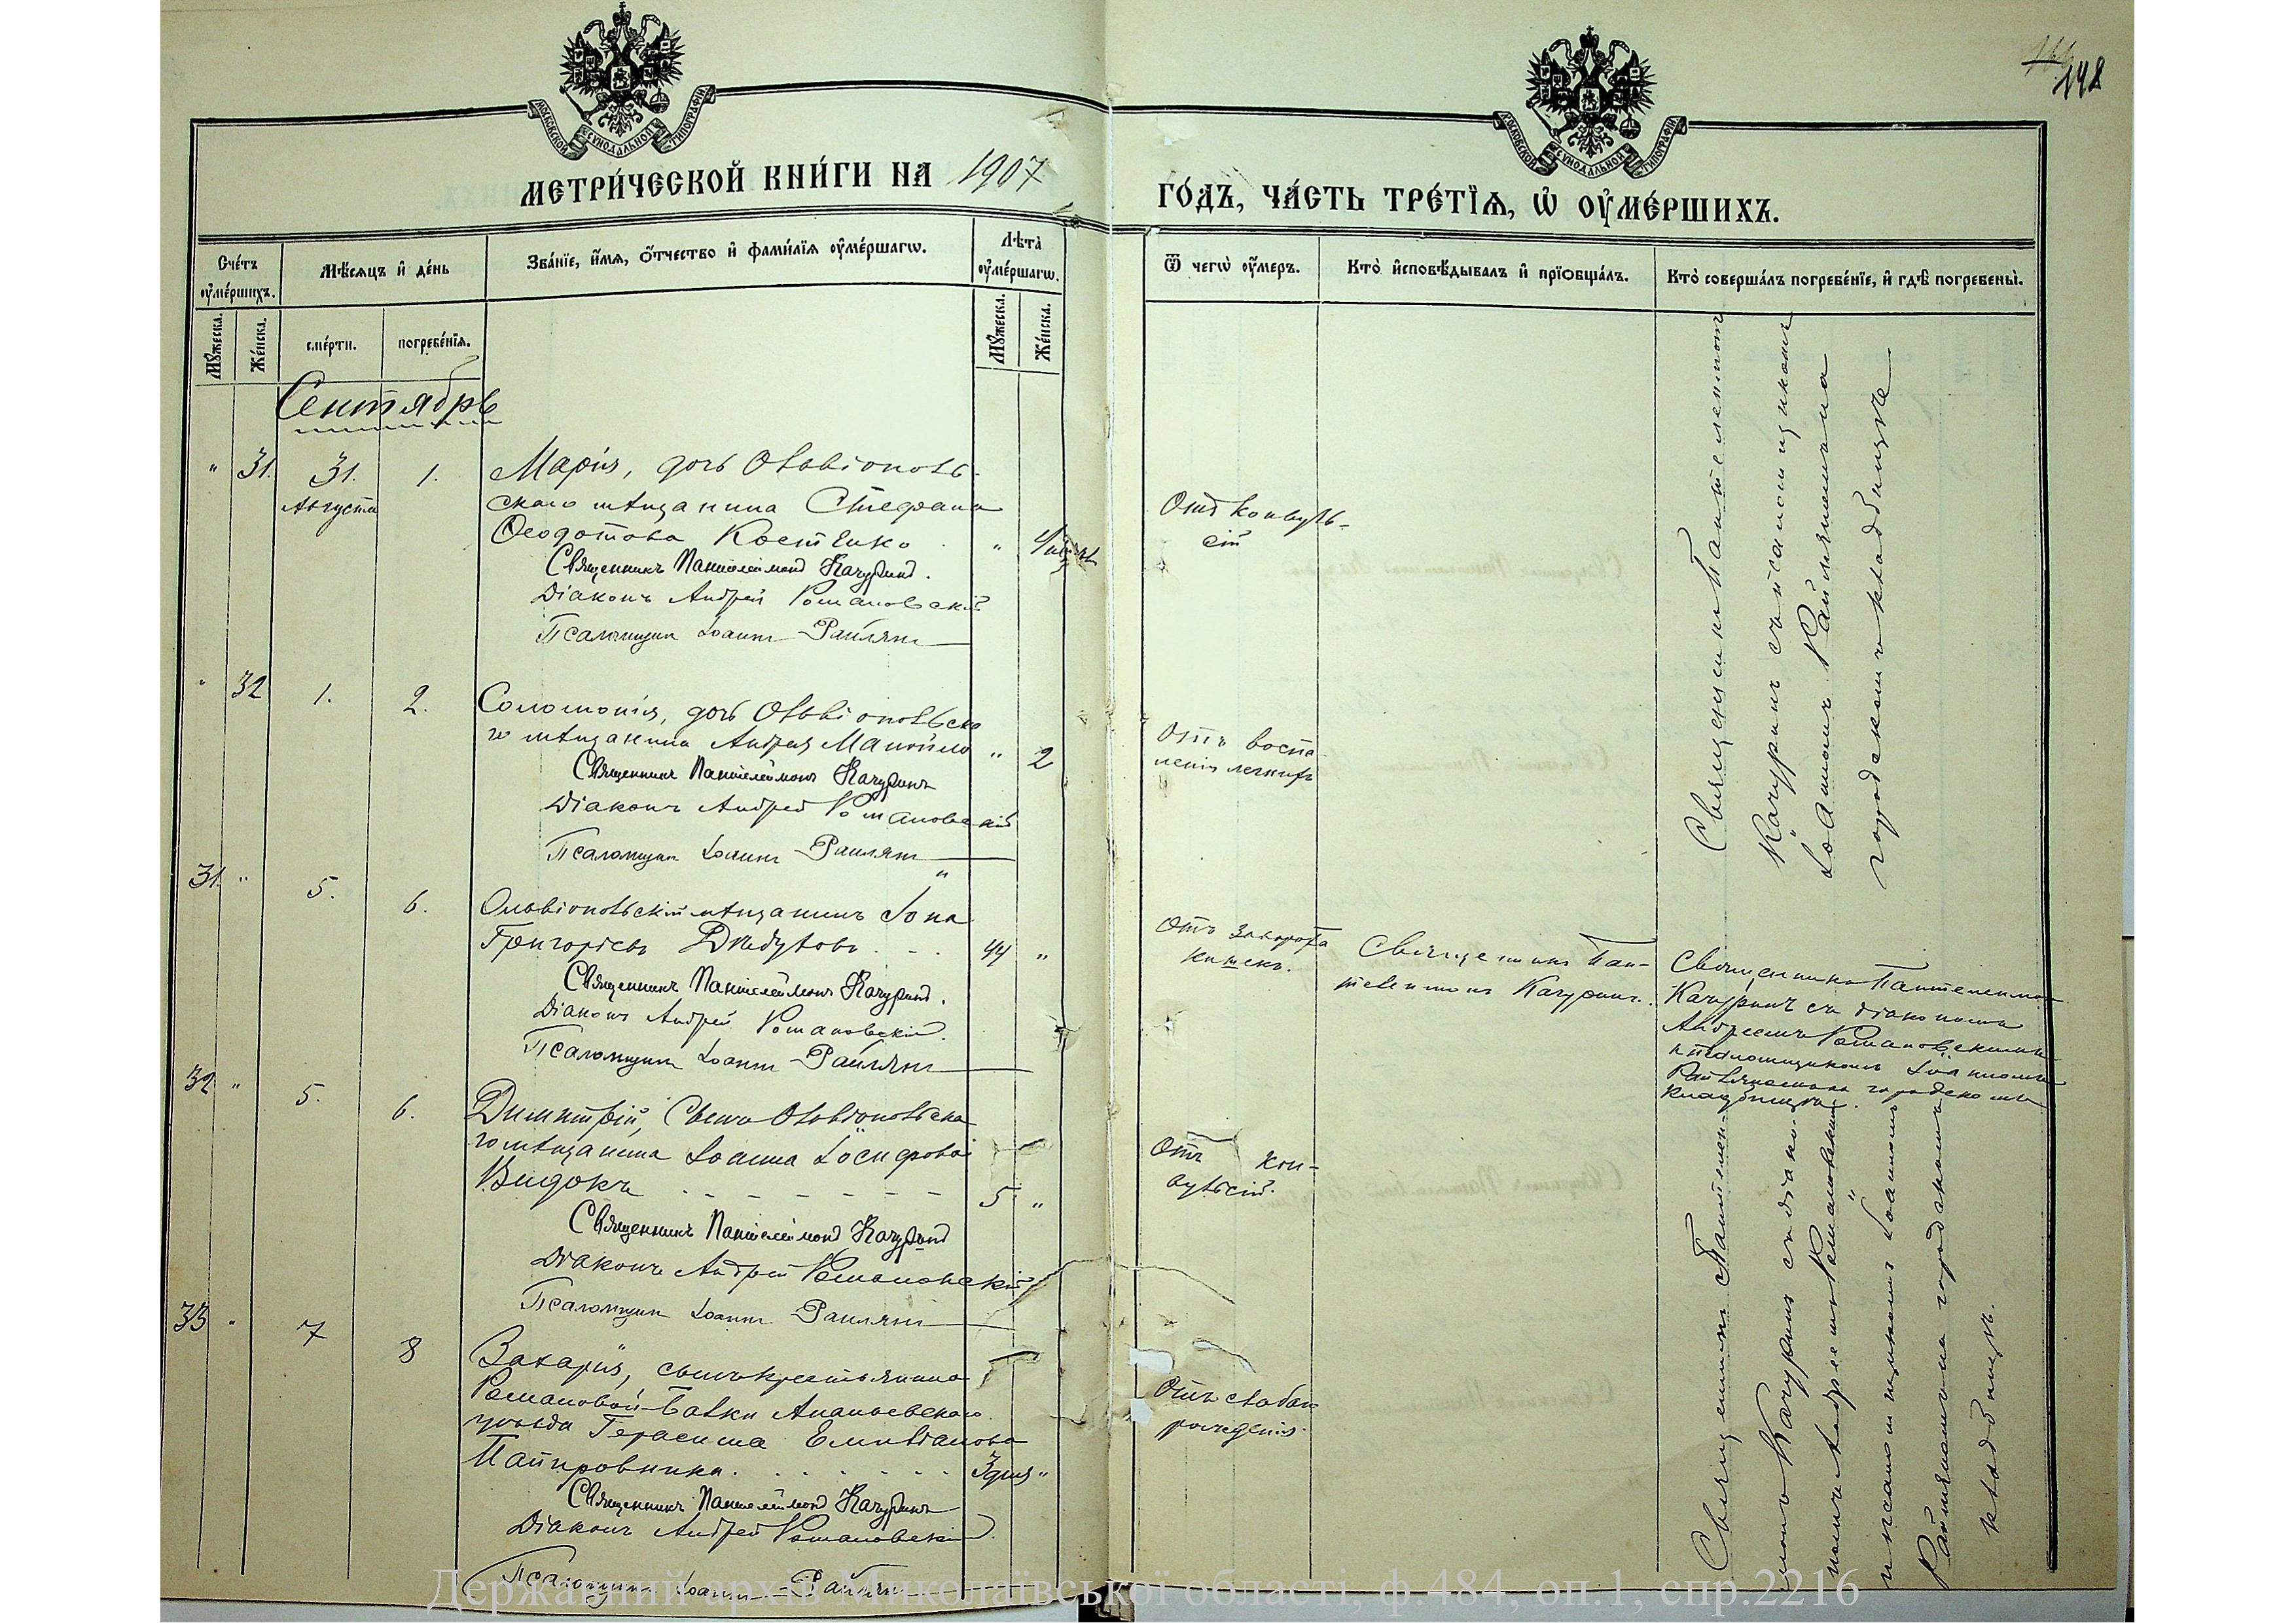 148
МОСКОВСКОЙ СѴНОДАЛЬНОЙ ТИПОГРАФІИ
МОСКОВСКОЙ СѴНОДАЛЬНОЙ ТИПОГРАФІИ
МЕТРИ́ЧЕСКОЙ КНИ́ГИ НА 1907
ГО́ДЪ, ЧА́СТЬ ТРЕ́ТЇѦ, Ѿ ОУ҆МЕ́РШИХЪ.
Сче́тъ оу҆ме́ршихъ.
Мѣ́сѧцъ и҆ де́нь
Зва́нїе, и҆́мѧ, ѻ҆́тчество и҆ фами́лїѧ оу҆ме́ршагѡ.
Лѣта̀ оу҆ме́ршагѡ.
Ѿ чегѡ̀ оу҆́меръ.
Кто̀ и҆сповѣ́дывалъ и҆ прїѡбща́лъ.
Кто̀ соверша́лъ погребе́нїе, и҆ гдѣ̀ погребены̀.
Мꙋ́жеска.
Же́нска.
сме́рти.
погребе́нїѧ.
Мꙋ́жеска.
Же́нска.
Сентябрь
" 31. 31. 1. Марія, дочь Ольвіополь-
Августа скаго мѣщанина Стефана
Ѳеодотова Костенко "
Священникъ Пантелеимонъ Качуринъ.
Діаконъ Андрей Романовскій
Псаломщик Іоаннъ Райлянъ
Отъ конвуль-
сій
Священникъ Пантелеимонъ
Качуринъ съ псаломщикомъ
Іоанномъ Райляномъ на
городскомъ кладбищѣ
" 32 1. 2. Соломонія, дочь Ольвіопольска
го мѣщанина Андрея Манойло " 2
Священникъ Пантелеимонъ Качуринъ
Діаконъ Андрей Романовскій
Псаломщик Іоаннъ Райлянъ
Отъ воспа-
ленія легкихъ
31 " 5. 6. Ольвіопольскій мѣщанинъ Іона
Григорьевъ 44 "
Священникъ Пантелеимонъ Качуринъ.
Діаконъ Андрей Романовскій.
Псаломщик Іоаннъ Райлянъ
Отъ заворота
кишекъ.
Священникъ Пан-
телеимонъ Качуринъ.
Священникъ Пантелеимонъ
Качуринъ съ діакономъ
Андреемъ Романовскимъ
и псаломщикомъ Іоанномъ
Райляномъ на городскомъ
кладбищѣ.
32 " 5. 6. Димитрій, сынъ Ольвіопольска
го мѣщанина Іоанна Іосифова
Видокъ 5 "
Священникъ Пантелеимонъ Качуринъ
Діаконъ Андрей Романовскій
Псаломщик Іоаннъ Райлянъ
Отъ кон-
вульсій.
Священникъ Пантелеи-
монъ Качуринъ съ діако-
номъ Андреемъ Романовскимъ
и псаломщикомъ Іоанномъ
Райляномъ на городскомъ
кладбищѣ.
33 " 7 8 Захарія, сынъ крестьянина
Романовой-Балки Ананьевскаго
уѣзда Герасима Емиліанова
Папировника. 3 дня "
Священникъ Пантелеимонъ Качуринъ
Діаконъ Андрей Романовскій
Псаломщик Іоаннъ Райлянъ
Отъ слабаго
рожденія.
Державний архів Миколаївської області, ф.484, оп.1, спр.2216